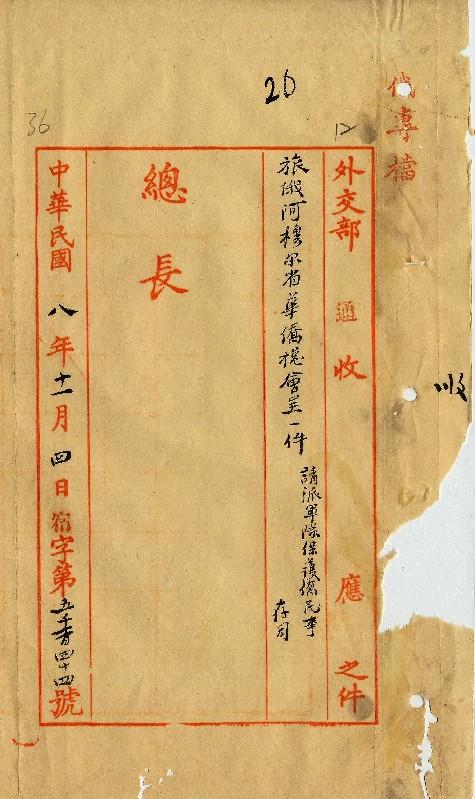 俄專檔
收
26
12
36
外交部 通 收 應 之件
旅俄阿穆尔省華僑總會呈一件
請派軍隊保護僑民事
存司
總長
中華民國八年十一月四日 字第五千百四十四號